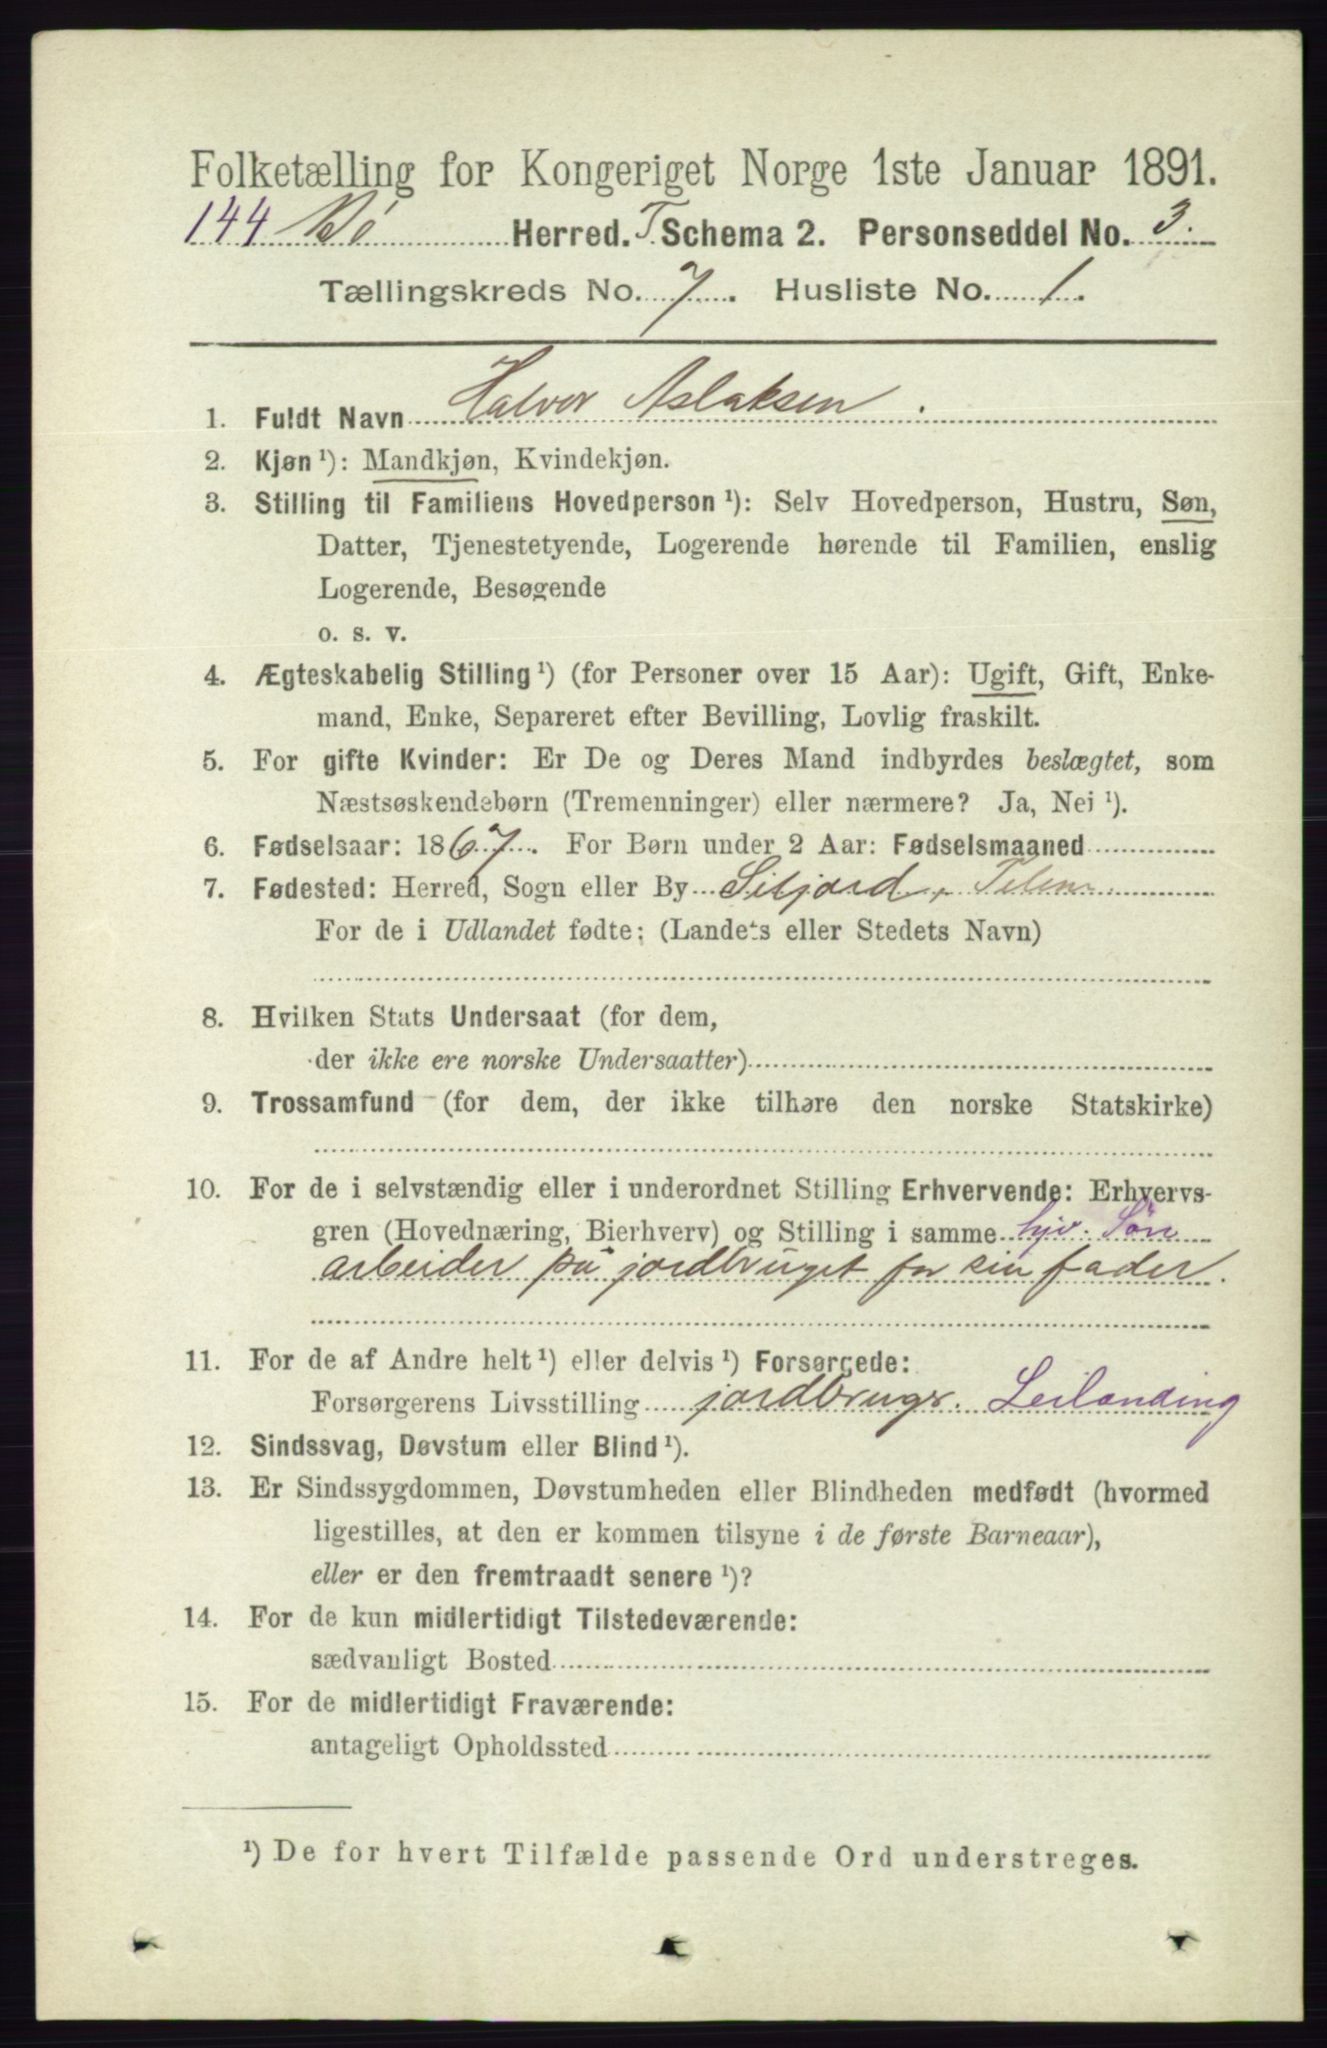 Folketælling for Kongeriget Norge 1ste Januar 1891.
144 Bø Herred. T. Schema 2. Personseddel No. 3.
Tællingskreds No. 7. Husliste No. 1.
1. Fuldt Navn Halvor Aslaksen.
2. Kjøn ¹): Mandkjøn, Kvindekjøn.
3. Stilling til Familiens Hovedperson ¹): Selv Hovedperson, Hustru, Søn,
Datter, Tjenestetyende, Logerende hørende til Familien, enslig
Logerende, Besøgende
o. s. v.
4. Ægteskabelig Stilling ¹) (for Personer over 15 Aar): Ugift, Gift, Enke-
mand, Enke, Separeret efter Bevilling, Lovlig fraskilt.
5. For gifte Kvinder: Er De og Deres Mand indbyrdes beslægtet, som
Næstsøskendebørn (Tremenninger) eller nærmere? Ja, Nei ¹).
6. Fødselsaar: 1867. For Børn under 2 Aar: Fødselsmaaned
7. Fødested: Herred, Sogn eller By Siljord, Telem.
For de i Udlandet fødte: (Landets eller Stedets Navn)
8. Hvilken Stats Undersaat (for dem,
der ikke ere norske Undersaatter)
9. Trossamfund (for dem, der ikke tilhøre den norske Statskirke)
10. For de i selvstændig eller i underordnet Stilling Erhvervende: Erhvervs-
gren (Hovednæring, Bierhverv) og Stilling i samme hjv. Søn
arbeider på jordbruget for sin fader.
11. For de af Andre helt ¹) eller delvis ¹) Forsørgede:
Forsørgerens Livsstilling jordbrugr. Leilænding
12. Sindssvag, Døvstum eller Blind ¹).
13. Er Sindssygdommen, Døvstumheden eller Blindheden medfødt (hvormed
ligestilles, at den er kommen tilsyne i de første Barneaar),
eller er den fremtraadt senere ¹)?
14. For de kun midlertidigt Tilstedeværende:
sædvanligt Bosted
15. For de midlertidigt Fraværende:
antageligt Opholdssted
¹) De for hvert Tilfælde passende Ord understreges.